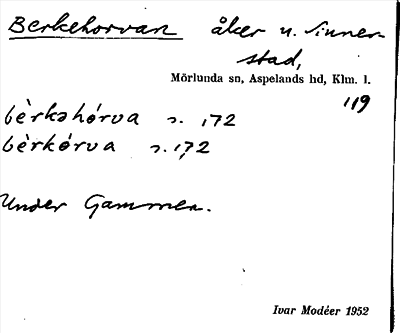 Berkehorvan åker u. Sinner-
stad,
Mörlunda sn, Aspelands hd, Klm. l.
119
bèrkəhórva s. 172
bèrkórva s. 172
Under Gammen.
Ivar Modéer 1952